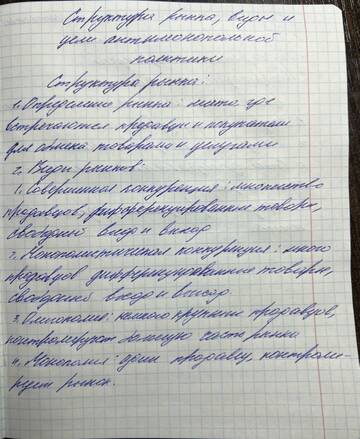 Структура рынка, виды и
цели антимонопольной
политики
Структура рынка:
1. Определение рынка: место где
встречаются продавцы и покупатели
для обмена товарами и услугами
2. Виды рынков:
1. Совершенная конкуренция: множество
продавцов, дифференцированные товары,
свободный вход и выход
2. Монополистическая конкуренция: много
продавцов дифференцированные товары,
свободный вход и выход
3. Олигополия: немного крупных продавцов,
контролируют большую часть рынка
4. Монополия: один продавец, контроли-
рует рынок.